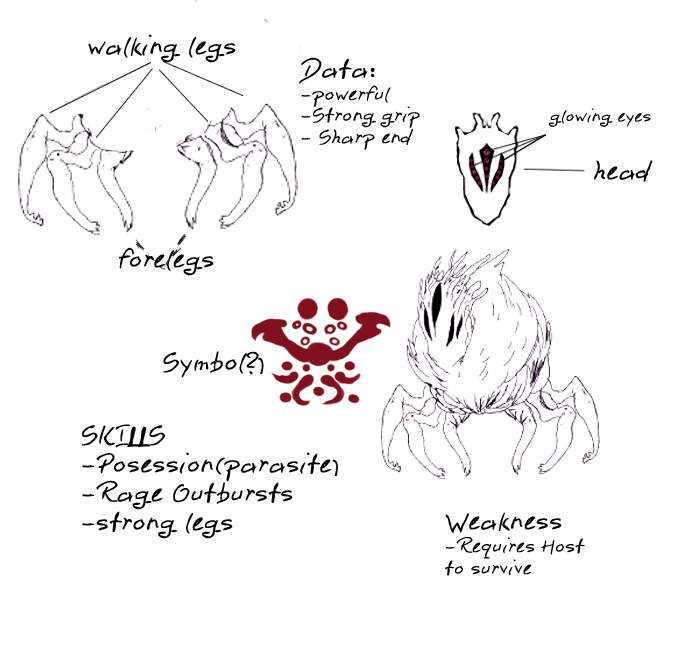 walking legs
Data:
-powerful
-Strong grip
- Sharp end
glowing eyes
head
forelegs
Symbol(?)
SKIllS
-Posession(parasite)
-Rage Outbursts
-strong legs
Weakness
-Requires Host
to survive